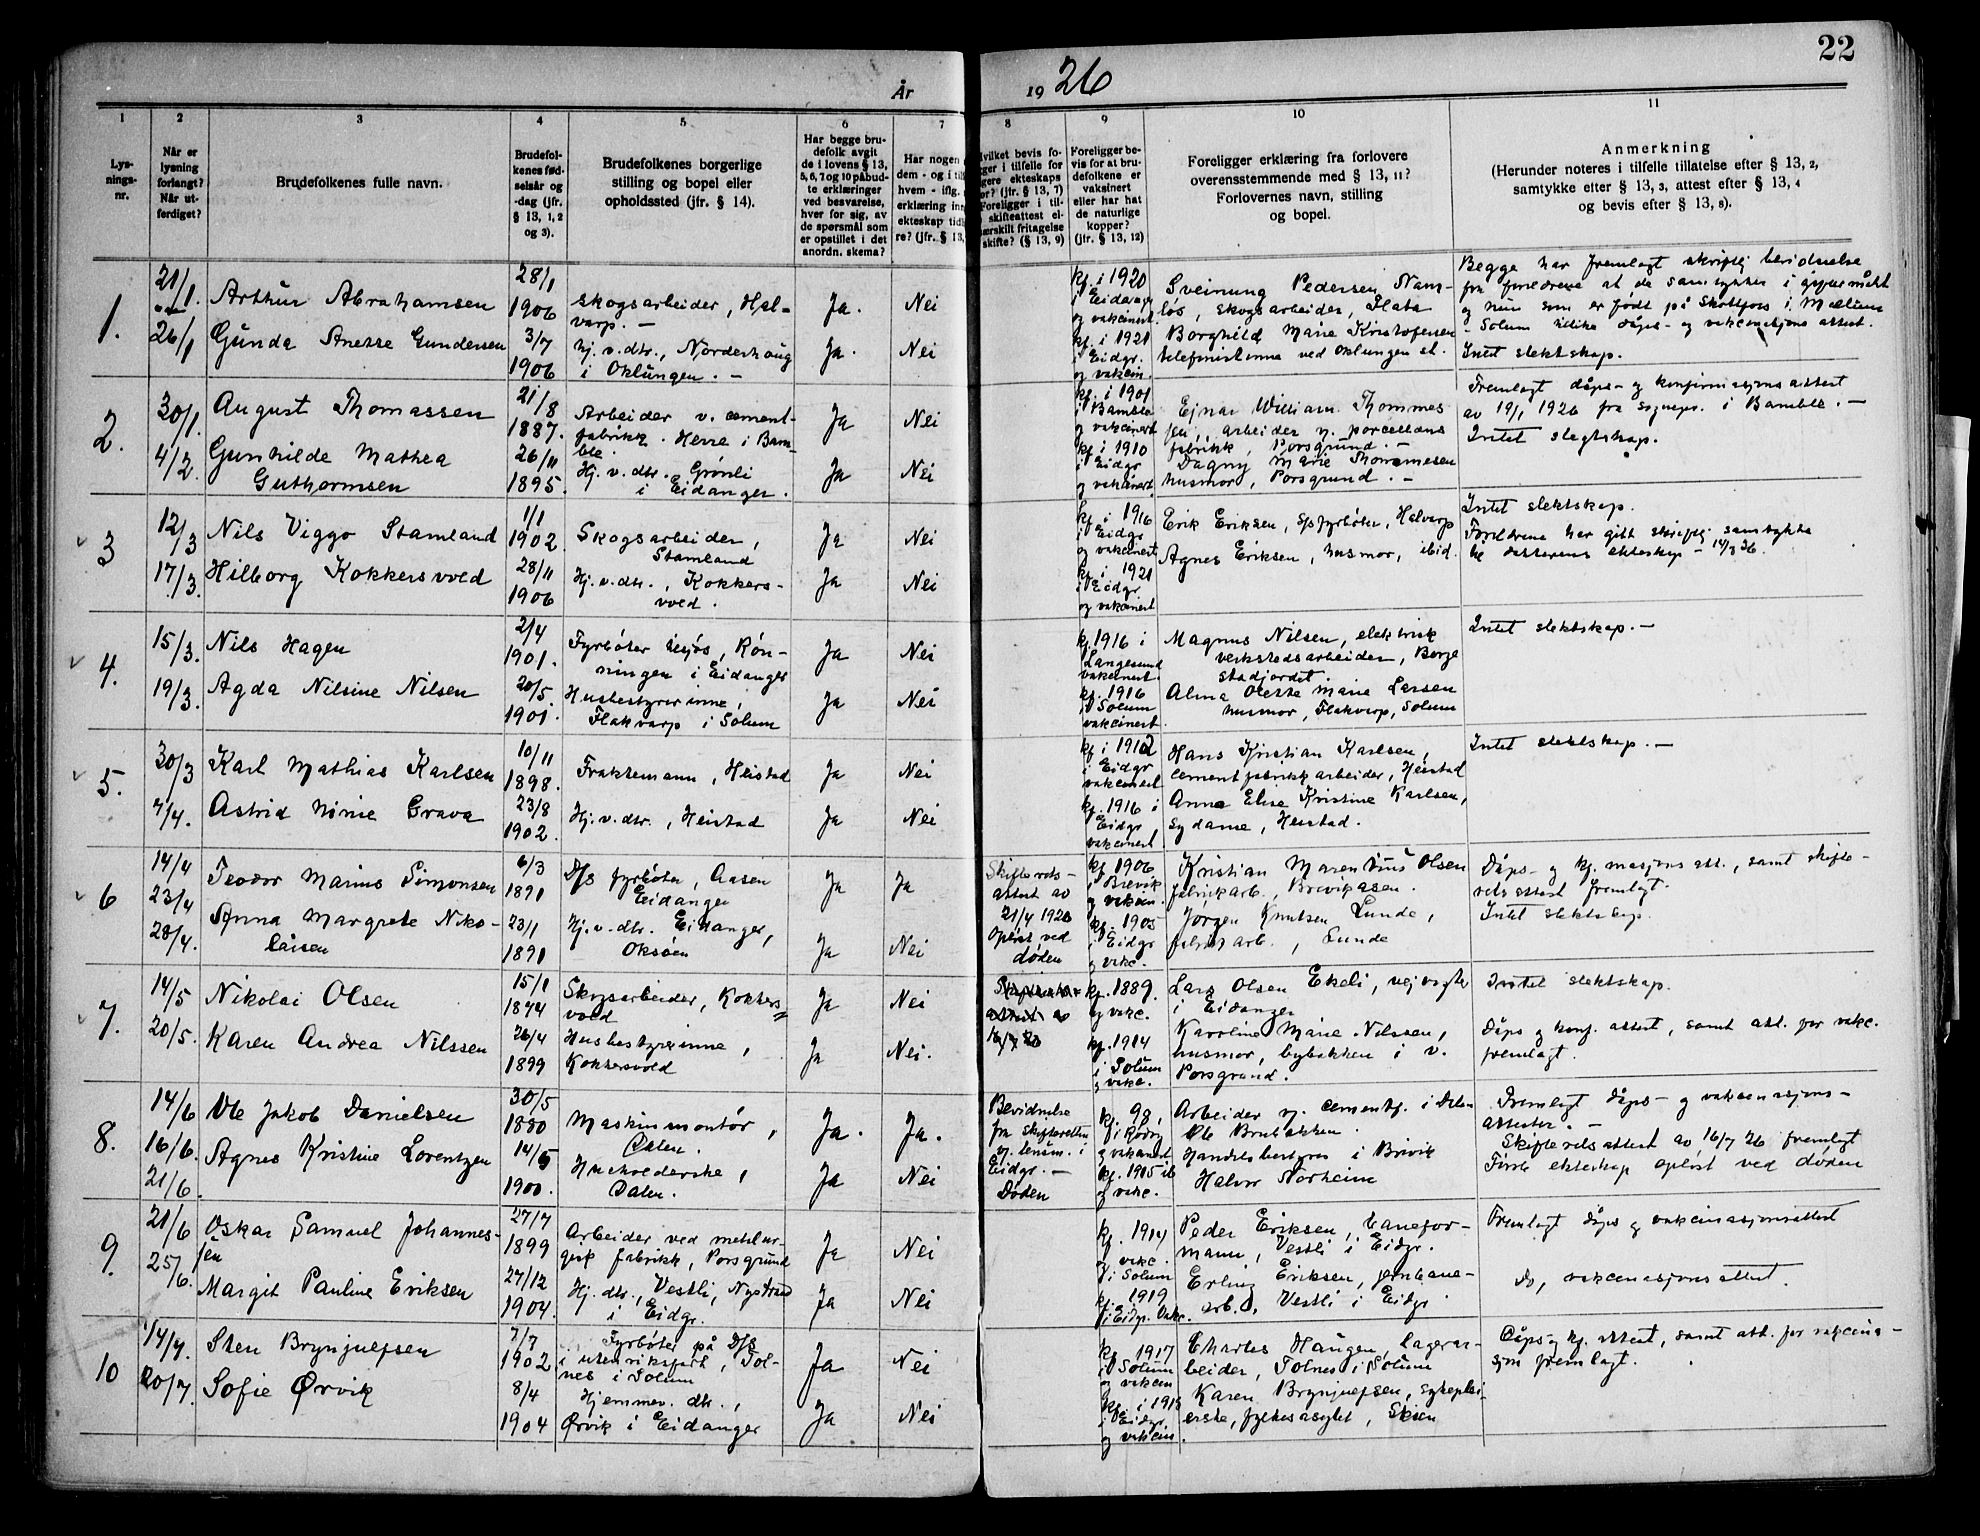 22
År 1926
1 2 3 4 5 6 7 8 9 10 11
Lys-
nings-
nr.
Når er
lysning
forlangt?
Når ut-
ferdiget?
Brudefolkenes fulle navn.
Brudefol-
kenes fød-
selsår og
-dag (jfr.
§ 13, 1, 2
og 3).
Brudefolkenes borgerlige
stilling og bopel eller
opholdssted (jfr. § 14).
Har begge bru-
defolk avgit
de i lovens § 13,
5, 6, 7 og 10 påbud-
te erklæringer
ved besvarelse,
hver for sig, av
de spørsmål som
er opstillet i det
anordn. skema?
Har nogen
dem - og i til
hvem - iflg.
erklæring inn
ekteskap tidl
re? (Jfr. § 13,
vilket bevis fo-
ger i tilfelle for
gere ekteskaps
or? (jfr. § 13, 7)
Foreligger i til-
skifteattest el-
særskilt fritagelse
skifte? (§ 13, 9)
Foreligger be-
vis for at bru-
defolkene er
vaksinert
eller har hat
de naturlige
kopper?
(Jfr. § 13, 12)
Foreligger erklæring fra forlovere
overensstemmende med § 13, 11?
Forlovernes navn, stilling
og bopel.
Anmerkning
(Herunder noteres i tilfelle tillatelse efter § 13, 2,
samtykke efter § 13, 3, attest efter § 13, 4
og bevis efter § 13, 8).
1.
21/1.
26/1
Arthur Abrahamsen
Gunda Anette Gundersen
28/1
1906
3/7
1906
skogsarbeider, Hal-
varp. —
Hj. v. dtr., Norderhaug
i Oklungen. —
Ja. Nei
Ja. Nei
kf. i 1920
i Eidanger
og vakcinert
kf. i 1921
i Eidgr.
og vakcin.
Sveinung Pedersen Nam-
løs, skogsarbeider, Flata
Borghild Marie Kristofersen
telefonistinne ved Oklungen st.
Begge har fremlagt skriftlig bevidnelse
fra foreldrene at de samtykker i giftermålet
og hun som er født på Skotfoss i Mælum
- Solum tillike dåps- og vakcinasjons attest.
Intet slektskap.
2.
30/1.
4/2.
August Thomassen
Gunhilde Mathea
Guthormsen
21/8
1887.
26/11
1895.
Arbeider v. cement-
fabrikk. Herre i Bam-
ble.
Hj. v. dtr. Grønli
i Eidanger.
Ja Nei
Ja Nei
kf. i 1901
i Bamble
og vakcinert
kf. i 1910
i Eidgr
og vakcinert.
Ejnar William Thommes
sen, arbeider v. porcellæns
fabrikk, Porsgrund. —
Dagny Marie Thommesen
husmor, Porsgrund. —
Fremlagt dåps- og konfirmasjons attest
av 19/1 1926 fra sognepr. i Bamble. —
Intet slegtskap.
3
12/3
17/3.
Nils Viggo Stamland
Hilborg Kokkersvold
1/1
1902.
28/11
1906
Skogsarbeider,
Stamland
Hj. v. dtr., Kokkers-
vold.
Ja Nei
Ja Nei
kf. i 1916
i Eidgr
og vakcinert
kf. i 1921
i Eidgr.
og vakcinert
Erik Eriksen, Sjøfyrbøter, Halvarp
Agnes Eriksen, husmor, ibid.
Intet slektskap.
Foreldrene har gitt skriftlig samtykke
til datterens ekteskap - 14/3 26.
4.
15/3.
19/3.
Nils Hagen
Agda Nilsine Nilsen
2/4
1901.
20/5.
1901.
Fyrbøter tilsjøs, Røn-
ningen i Eidanger
Husbestyrerinne,
Flakvarp i Solum
Ja Nei
Ja Nei
kf. 1916 i
Langesund
vakcinert.
kf. 1916
i Solum
vakcinert.
Magnus Nilsen, elektrisk
verkstedsarbeider, Borge
stadjordet.
Alma Oleste Marie Larsen
husmor, Flakvarp, Solum
Intet slektskap. —
5.
30/3
7/4.
Karl Mathias Karlsen
Astrid Marie Grava
10/11
1898.
23/8
1902.
Fraktemann, Heistad
Hj. v. dtr., Heistad
Ja Nei
Ja Nei
kf. i 1912
i Eidgr
vakcinert
kf. 1916 i
Eidgr
vakcinert
Hans Kristian Karlsen,
cementfabrikkarbeider, Heistad
Anna Elise Kristine Karlsen,
sydame, Heistad.
Intet slektskap. —
6
14/4
23/4
28/4.
Teodor Marius Simonsen
Anna Margrete Niko-
laisen
6/3
1891
23/1
1891
D/s fyrbøter, Aasen
Eidanger
Hj. v. dtr. Eidanger,
Oksøen
Ja Ja
Ja Nei
Skifterets-
attest av
21/4 1926
opløst ved
døden
kf 1906
i Brevik
og vakcin.
kf. 1905
i Eidgr
og vakc.
Kristian Marentius Olsen
fabrikarb., Brevikåsen.
Jørgen Knutsen Lunde,
fabrikarb., Lunde
Dåps- og kf.masjons att., samt skifte-
rets attest fremlagt.
Intet slektskap.
7.
14/5
20/5.
Nikolai Olsen
Karen Andrea Nilssen
15/1
1874
26/4
1899
Skogsarbeider, Kokkers
vold
Husbestyrerinne,
Kokkersvold
Ja Nei
Ja Nei.
kf. 1889.
og vakc.
kf. 1914
i Solum
og vakc.
Lars Olsen Ekeli, vejvogter
i Eidanger
Karoline Marie Nilssen,
husmor, bybakken i v.
Porsgrund.
Intet slektskap.
Dåps og konf. attest, samt att. for vakc.
fremlagt.
8.
14/6
16/6.
21/6.
Ole Jakob Danielsen
Agnes Kristine Lorentzen
30/5
1880
14/5
1900.
Maskinmontør,
Dalen.
Husholderske,
Dalen.
Ja. Ja.
Ja Nei
Bevidnelse
fra skifteretten
v. lensm. i
Eidgr. —
Døden
kf. 98,
og vakcinert
kf. 1915 ib
og vakc.
Arbeider v. cementf. i Dalen
Ole Brubakken.
Handelsbestyrer i Brevik
Halvor Norheim
Fremlagt dåps- og vakcinasjons-
attester. —
Skifterets attest av 16/7 26 fremlagt
Første ekteskap opløst ved døden
9.
21/6
25/6.
Oskar Samuel Johannes-
sen
Margit Pauline Eriksen
27/7
1899
27/12
1904.
Arbeider ved metalur-
gisk fabrikk, Porsgrund
Hj. dtr., Vestli, Nystrand
i Eidgr.
Ja Nei
Ja Nei
kf. 1914
og vakc.
i Solum
kf. 1919
i Eidgr. Vakc.
Peder Eriksen, banefor-
mann, Vestli i Eidgr.
Erling Eriksen, jernbane-
arb., Vestli i Eidgr.
Fremlagt dåps og vakcinasjonsattest
Do, vakcinasjonsattest.
10
14/7.
20/7.
Sten Brynjulfsen
Sofie Ørvik
7/7
1902
8/4
1904
Fyrbøter på D/s
i utenriksfart, Tol-
nes i Solum
Hjemmev. dtr.,
Ørvik i Eidanger
Ja Nei
Ja Nei
kf. 1917
i Solum
og vakcin
kf. i 1918
i Eidgr.
og vakcin.
Charles Haugen, lagerar-
beider, Tolnes i Solum
Karen Brynjulfsen, sykeplei-
erske, fylkesasylet, Skien
Dåps- og kf. attest, samt att. for vakcina-
sjon fremlagt.